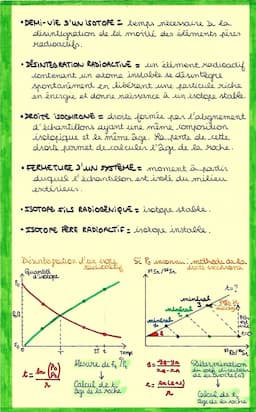 • DEMI-VIE D'UN ISOTOPE = temps nécessaire à la
désintégration de la moitié des éléments pères
radioactifs.
• DÉSINTÉGRATION RADIOACTIVE = un élément radioactif
contenant un atome instable se désintègre
spontanément en libérant une particule riche
en énergie et donne naissance à un isotope stable.
• DROITE ISOCHRONE = droite formée par l'alignement
d'échantillons ayant une même composition
isotopique et le même âge. La pente de cette
droite permet de calculer l'âge de la roche.
• FERMETURE D'UN SYSTÈME = moment à partir
duquel l'échantillon est isolé du milieu
extérieur.
• ISOTOPE FILS RADIOGÉNIQUE = isotope stable.
• ISOTOPE PÈRE RADIOACTIF = isotope instable.
Désintégration d'un
radioactif
Quantité
d'isotope
Temps
Mesure de
Calcul de t,
âge de la roche
Si inconnu : méthode de la
droite isochrone
t>0
minéral
minéral
minéral
Détermination
Calcul de t
âge de la roche